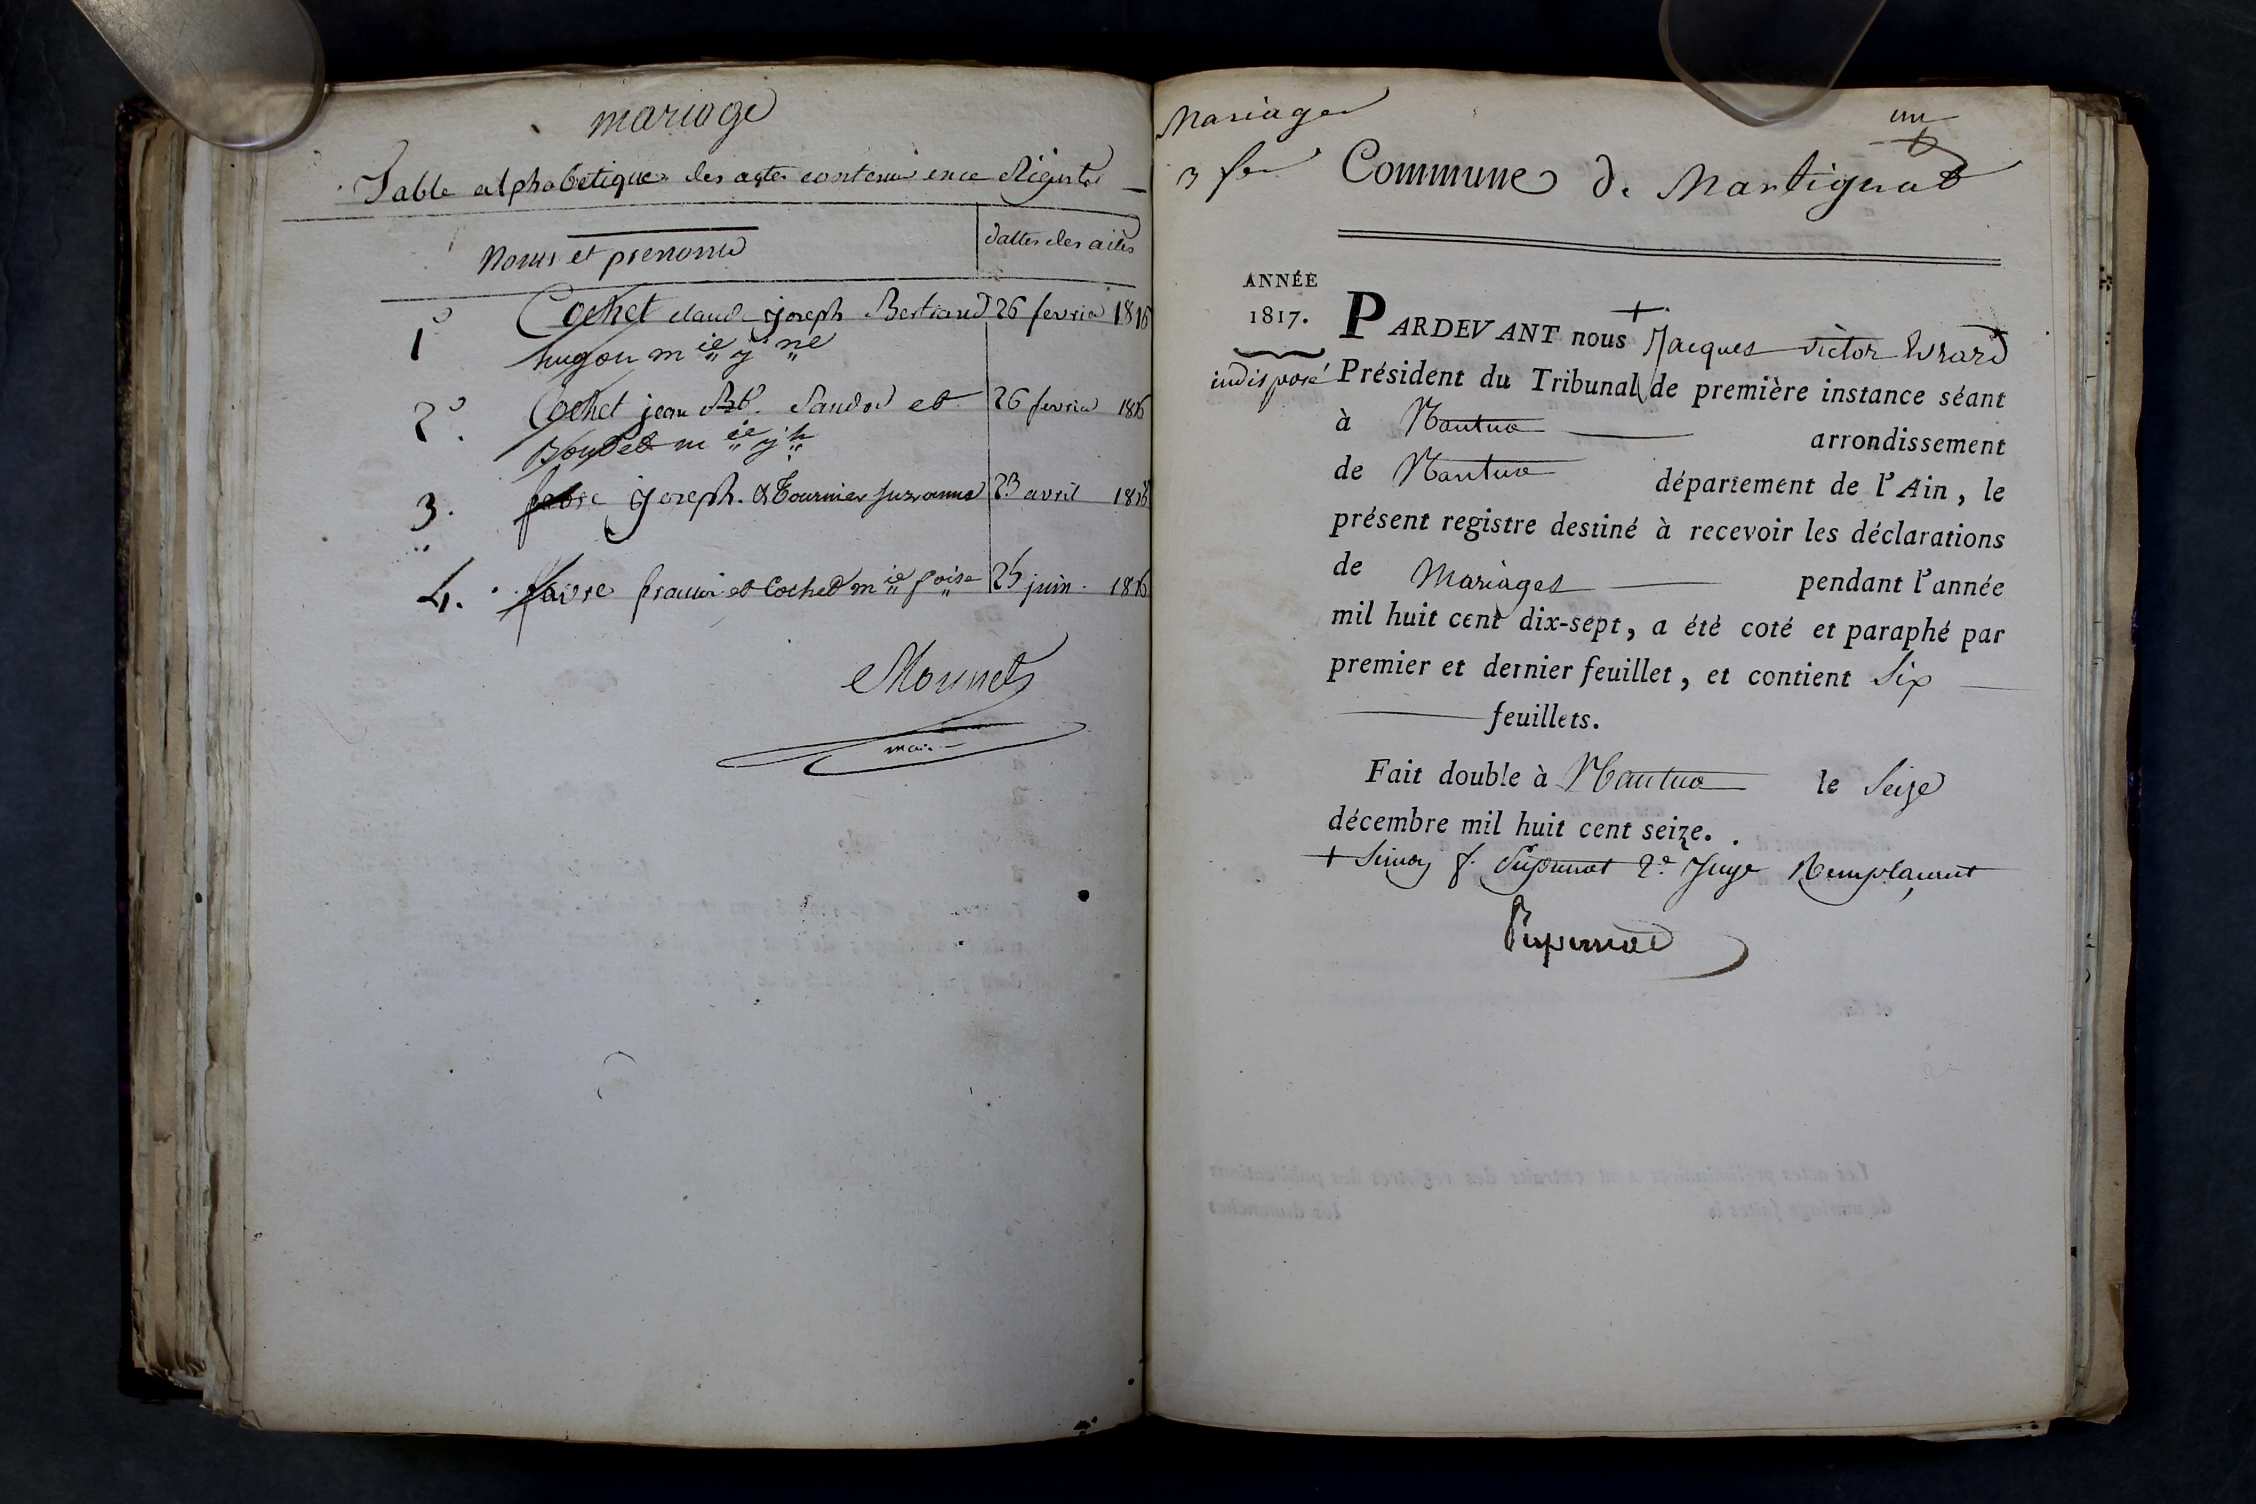 mariage
Table alphabetique des actes contenus en ce Régistre
Noms et prenoms
dattes des actes
1° Cochet claude joseph Bertrand 26 fevrier 1816
hugon m ie j ne
2° Cochet jean Bte. Sandoz et 26 fevrier 1816
Boudet m ie j h
3. favre joseph & Tournier Suzanne 23 avril 1816
4. favre francois et Cochet m ie f oise 25 juin 1816
Monnet
maire
Mariages
3 fer
un
Commune de Martignat
ANNÉE
1817.
indisposé
PARDEVANT nous + Jacques victor Evrard
Président du Tribunal de première instance séant
à Nantua arrondissement
de Nantua département de l'Ain, le
présent registre destiné à recevoir les déclarations
de Mariages pendant l'année
mil huit cent dix-sept, a été coté et paraphé par
premier et dernier feuillet, et contient Six
feuillets.
Fait double à Nantua le Seize
décembre mil huit cent seize.
+ 2e Juge Remplaçant